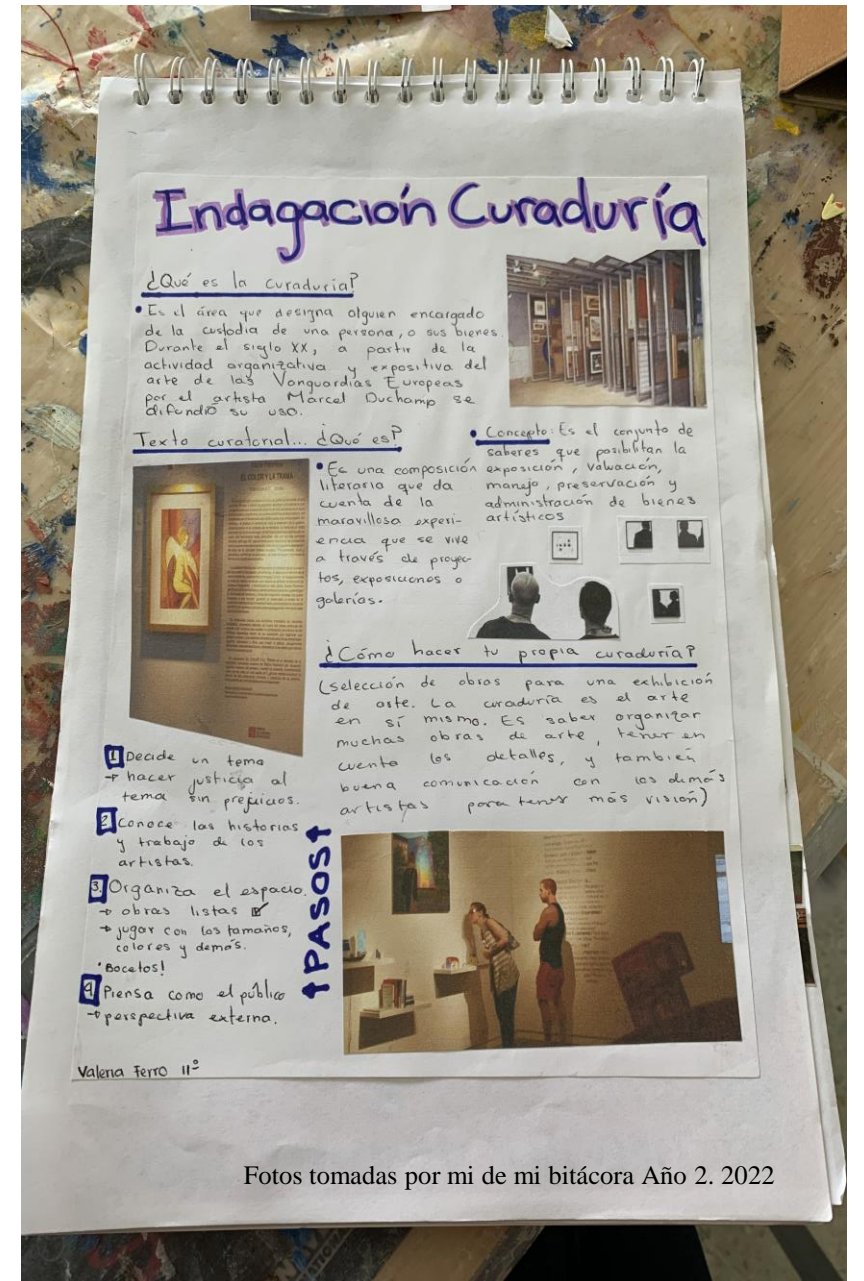 Indagación Curaduría
¿Qué es la curaduria?
• Es el área que designa alguien encargado
de la custodia de una persona, o sus bienes.
Durante el siglo XX, a partir de la
actividad organizativa y expositiva del
arte de las Vanguardias Europeas
por el artista Marcel Duchamp se
difundió su uso.
Texto curatorial... ¿Qué es?
EL COLOR Y LA TRAMA
• Es una composición
literaria que da
cuenta de la
maravillosa experi-
encia que se vive
a través de proyec-
tos, exposiciones o
galerías.
• Concepto: Es el conjunto de
saberes que posibilitan la
exposición, valuación,
manejo, preservación y
administración de bienes
artísticos
¿Cómo hacer tu propia curaduría?
(selección de obras para una exhibición
de arte. La curaduría es el arte
en sí mismo. Es saber organizar
muchas obras de arte, tener en
cuenta los detalles, y también
buena comunicación con los demás
artistas para tener más visión)
PASOS
1. Decide un tema
→ hacer justicia al
tema sin prejuicios.
2. Conoce las historias
y trabajo de los
artistas.
3. Organiza el espacio.
→ obras listas ☑
→ jugar con los tamaños,
colores y demás.
• Bocetos!
4. Piensa como el público
→ perspectiva externa.
Valeria Ferro 11°
Fotos tomadas por mi de mi bitácora Año 2. 2022